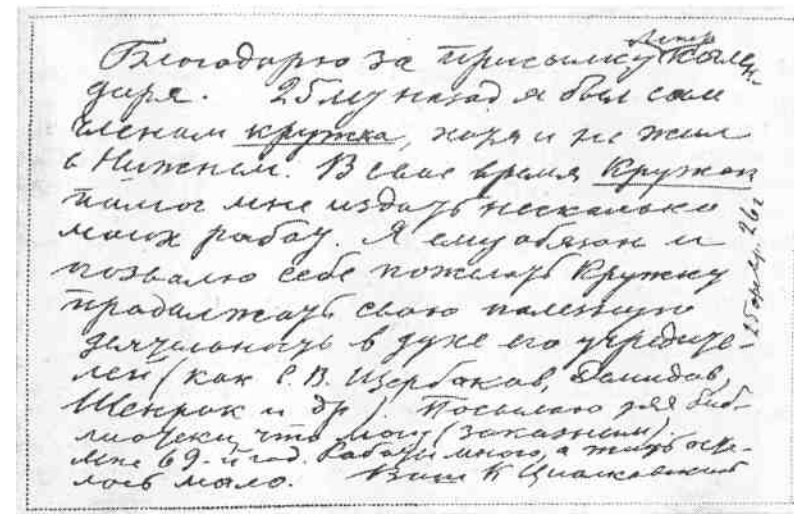 Благодарю за присылку Кален-
даря. 25 лет назад я был сам
членом кружка, хотя и не жил
в Нижнем. В свое время Кружок
помог мне издать несколько
моих работ. Я ему обязан и
позволю себе пожелать Кружку
продолжать свою полезную
деятельность в духе его учредите-
лей (как С. В. Щербаков, Демидов,
Шенрок и др.). Посылаю для биб-
лиотеки, что могу (заказным).
Мне 69-й год. Работы много, а жить оста-
лось мало. Ваш К Циолковский
26 г